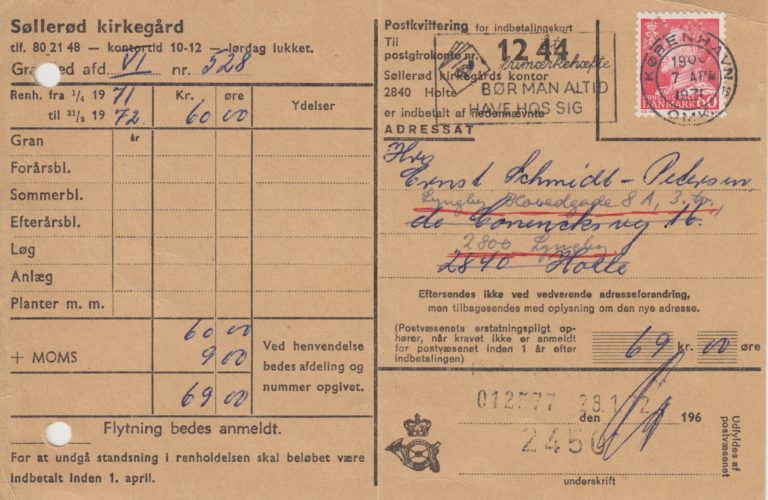 Søllerød kirkegård
tlf. 80 21 48 — kontortid 10-12 — lørdag lukket.
Gravsted afd. VI nr. 528
Renh. fra 1/4 19 71
til 31/3 19 72
Kr. øre
60 00
Ydelser
Gran
år
Forårsbl.
Sommerbl.
Efterårsbl.
Løg
Anlæg
Planter m. m.
60 00
+ MOMS 9 00
69 00
Ved henvendelse
bedes afdeling og
nummer opgivet.
Flytning bedes anmeldt.
For at undgå standsning i renholdelsen skal beløbet være
indbetalt inden 1. april.
Postkvittering for indbetalingskort
Til
postgirokonto nr. 12 44
Søllerød kirkegårds kontor
2840 Holte
er indbetalt af nedennævnte
ADRESSAT
frimærkehæfte
BØR MAN ALTID
HAVE HOS SIG
KØBENHAVN
OMK.
DANMARK 60
Hr.
Ernst Schmidt-Petersen,
Lyngby Hovedgade 8 A, 3. tv.
de Conincksvej 16.
2800 Lyngby
2840 Holte
Eftersendes ikke ved vedvarende adresseforandring,
men tilbagesendes med oplysning om den nye adresse.
(Postvæsenets erstatningspligt op-
hører, når kravet ikke er anmeldt
for postvæsenet inden 1 år efter
indbetalingen)
69 kr. 00 øre
012577
den
196
2450
underskrift
Udfyldes af
postvæsenet